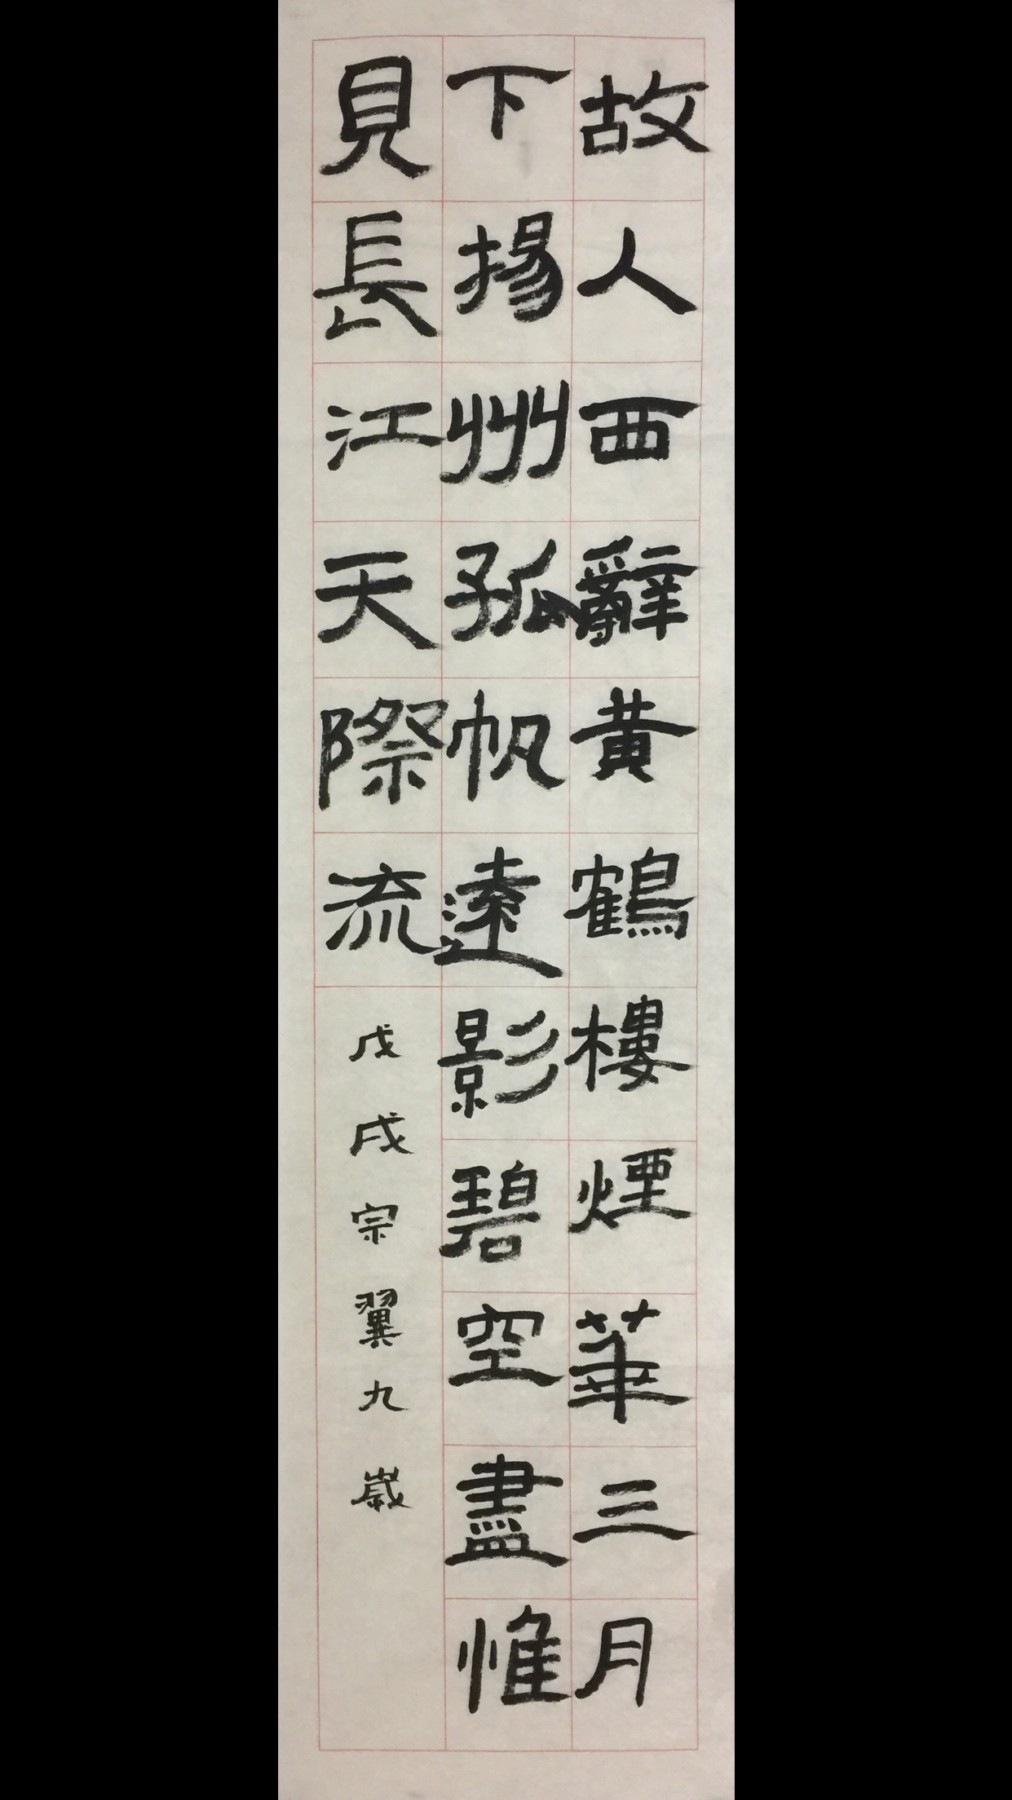 故人西辭黄鶴樓煙華三月
下揚州孤帆遠影碧空盡惟
見長江天際流
戊戌宗翼九歲